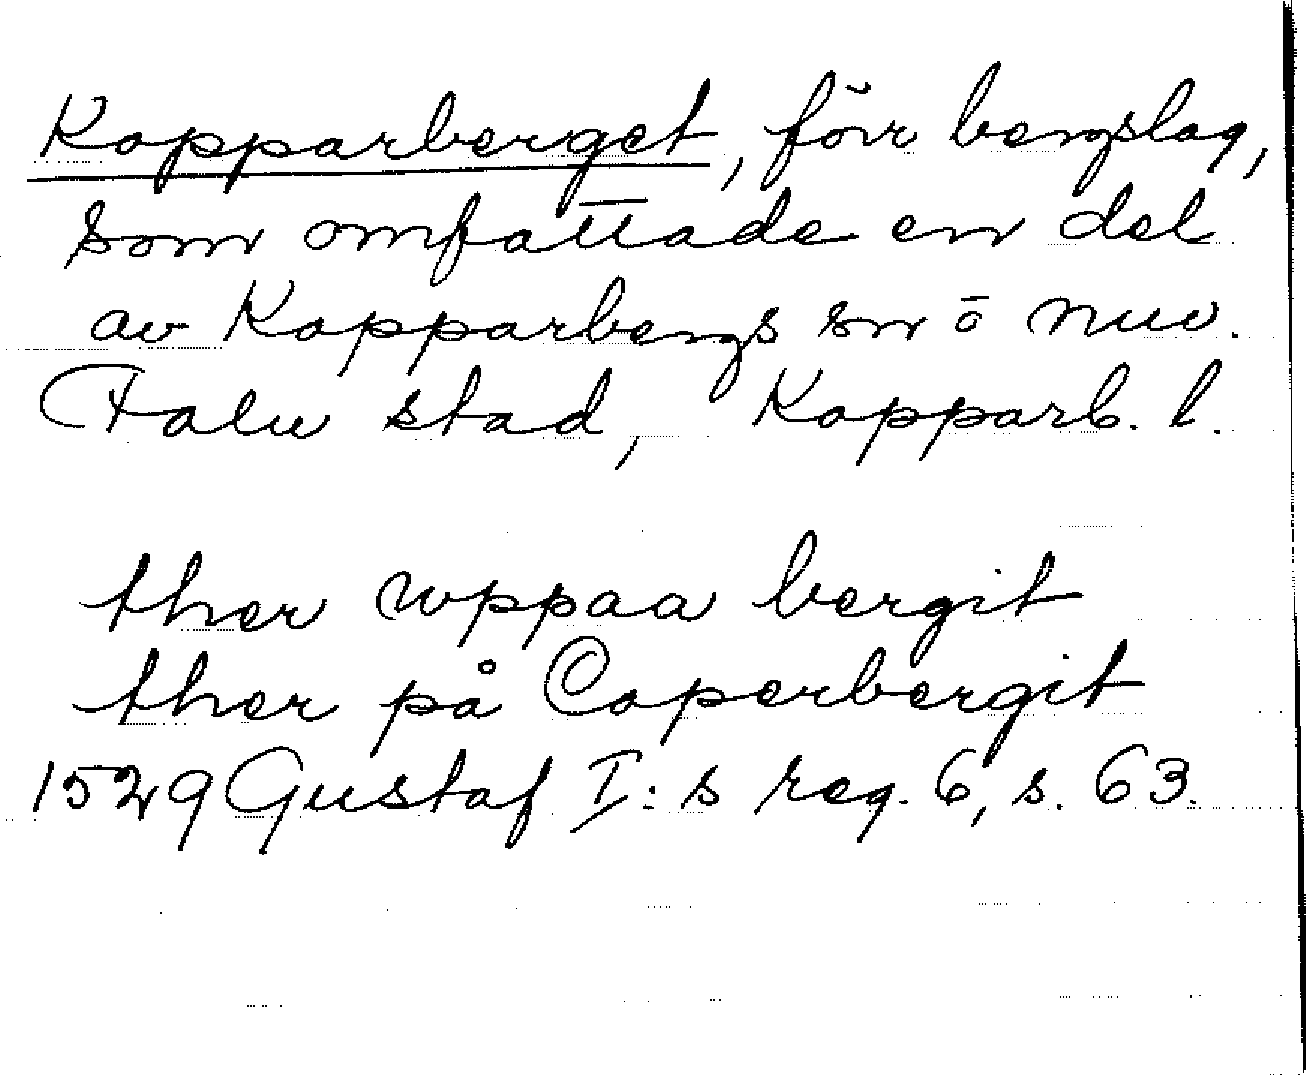 Kopparberget, förr bergslag,
som omfattade en del
av Kopparbergs sn o nuv.
Falu stad, Kopparb. l.
ther wppaa bergit
ther på Coperbergit
1529 Gustaf I:s reg. 6, s. 63.